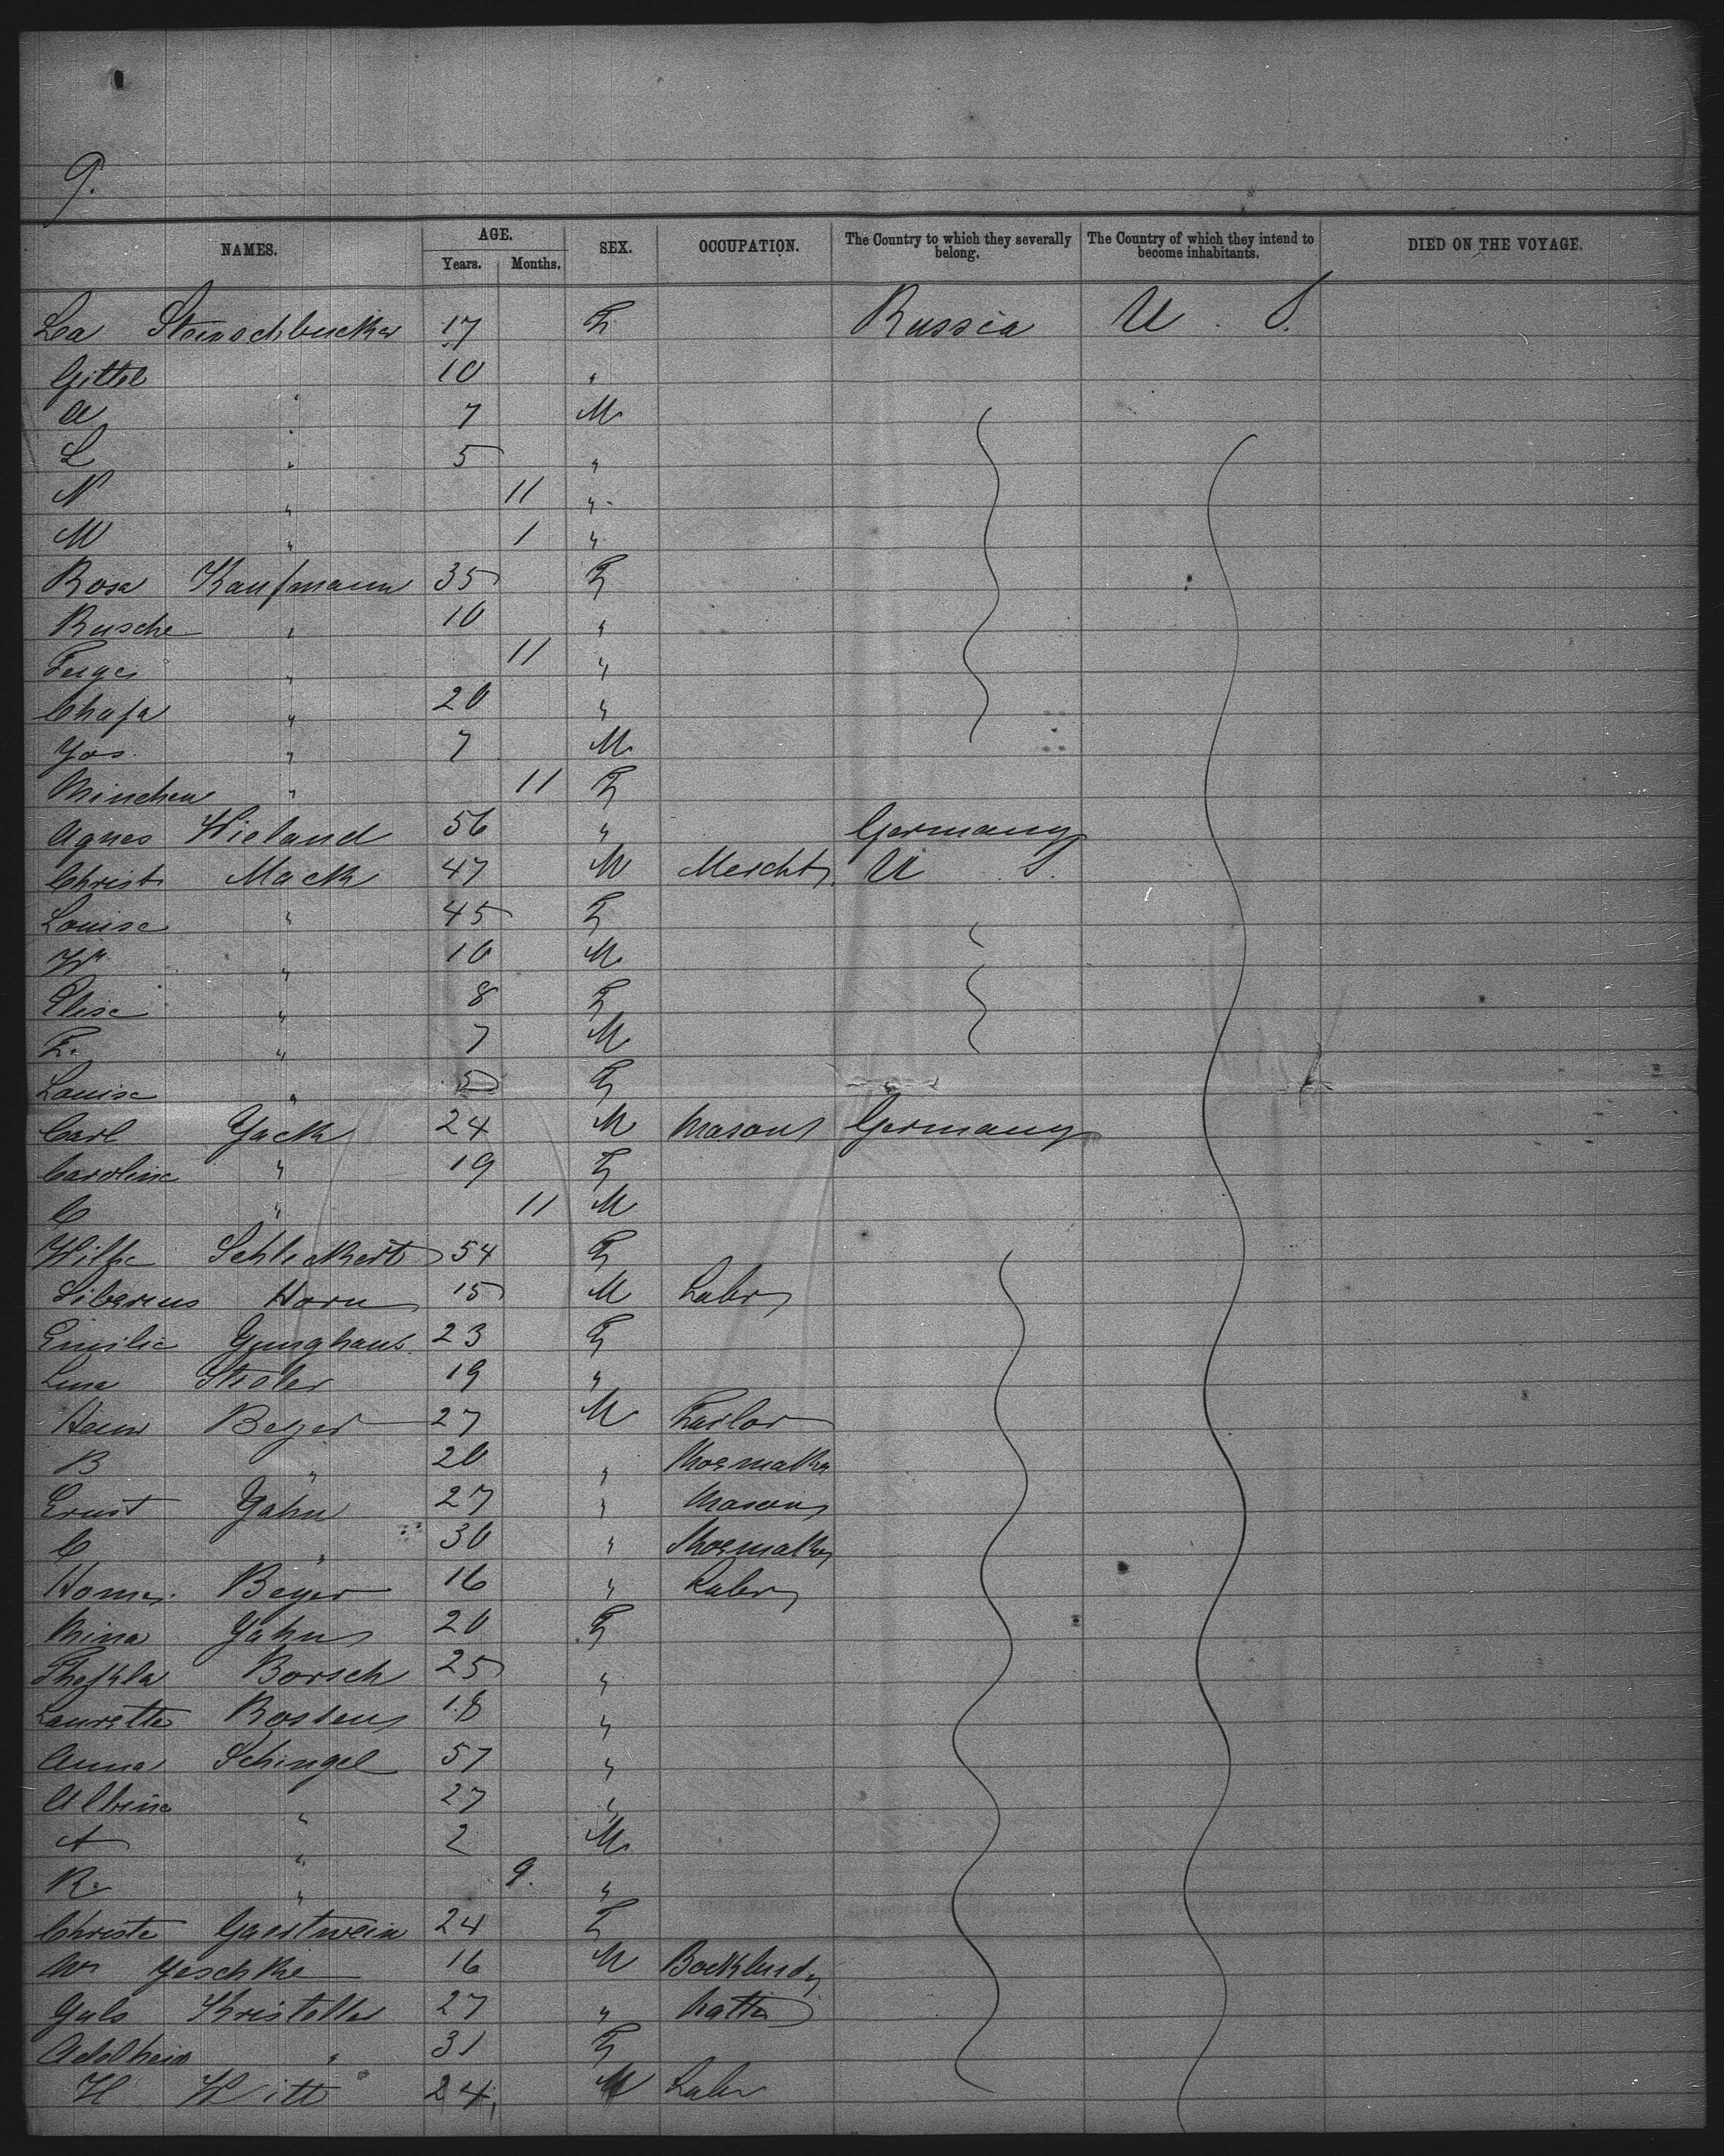 9.
NAMES. AGE. SEX. OCCUPATION. The Country to which they severally belong. The Country of which they intend to become inhabitants. DIED ON THE VOYAGE.
Years. Months.
Lea 17 F Russia U. S.
Gittel " 10 "
A " 7 M
L " 5 "
N " 11 "
M " 1 "
Rosa Kaufmann 35 F
Rusche " 10 "
Feige " 11 "
Chaja " 20 "
Jos. " 7 M
Minchen " 11 F
Agnes Wieland 56 " Germany
Christ Mack 47 M Mercht. U. S.
Louise " 45 F
Wm " 10 M
Elise " 8 F
F. " 7 M
Louise " 5 F
Carl Jack 24 M Mason Germany
Caroline " 19 F
C " 11 M
Wilhe Schlickert 54 F
Liberius Horn 15 M Labr
Emilie Junghans 23 F
Lina 19 "
Heinr Beyer 27 M Tailor
B " 20 " Shoemaker
Ernst Jahn 27 " Mason
C " 30 " Shoemaker
Beyer 16 " Labr
Mina Jahn 20 F
Thekla Borsch 25 "
Laurette 18 "
Anna Schingel 57 "
Albine " 27 "
A " 2 M
R. " 9. "
Christe 24 F
Wm Jeschke 16 M
Juls Kristeller 27 " Hatter
Adelheid " 31 F
H Witt 24 M Labr